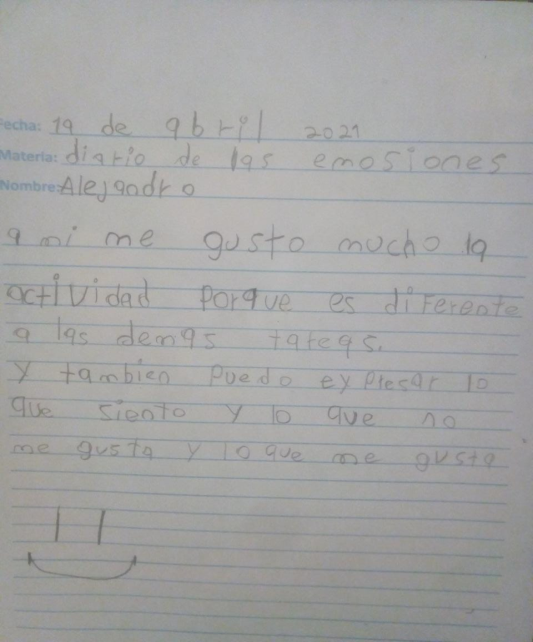 Fecha: 19 de abril 2021
Materia: diario de las emosiones
Nombre: Alejandro
a mi me gusto mucho la
actividad porque es diferente
a las demas tareas.
Y tambien puedo explesar lo
que siento y lo que no
me gusta y lo que me gusta